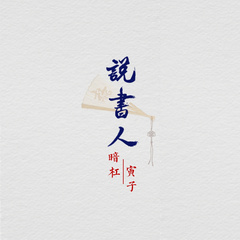 説書人
暗杠
寅子